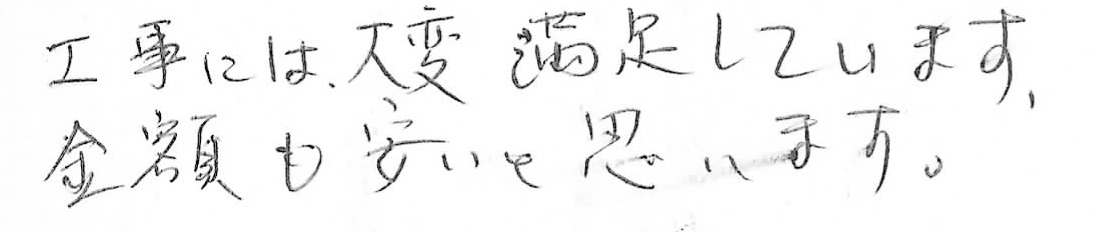 工事には、大変満足しています、
金額も安いと思います。